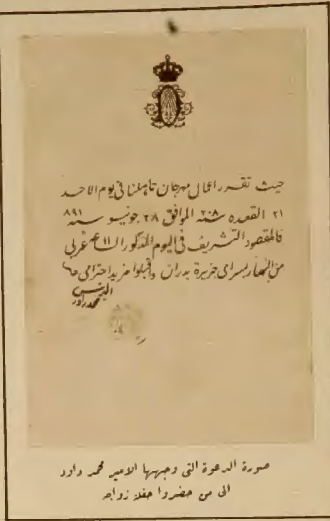 حيث تقرر اعمال مهرجان تاهلنا فى يوم الاحد
٢١ القعده سنة ٣٠٨ الموافق ٢٨ جونيو سنه ٨٩١
فالمقصود التشريف فى اليوم المذكور الساعه ١١ عربى
من النهار بسراى جزيرة بدران واقبلوا مزيد احترامى
البرنس
محمد داود
صورة الدعوة التى وجهها الامير محمد داود
الى من حضروا حفلة زواجه